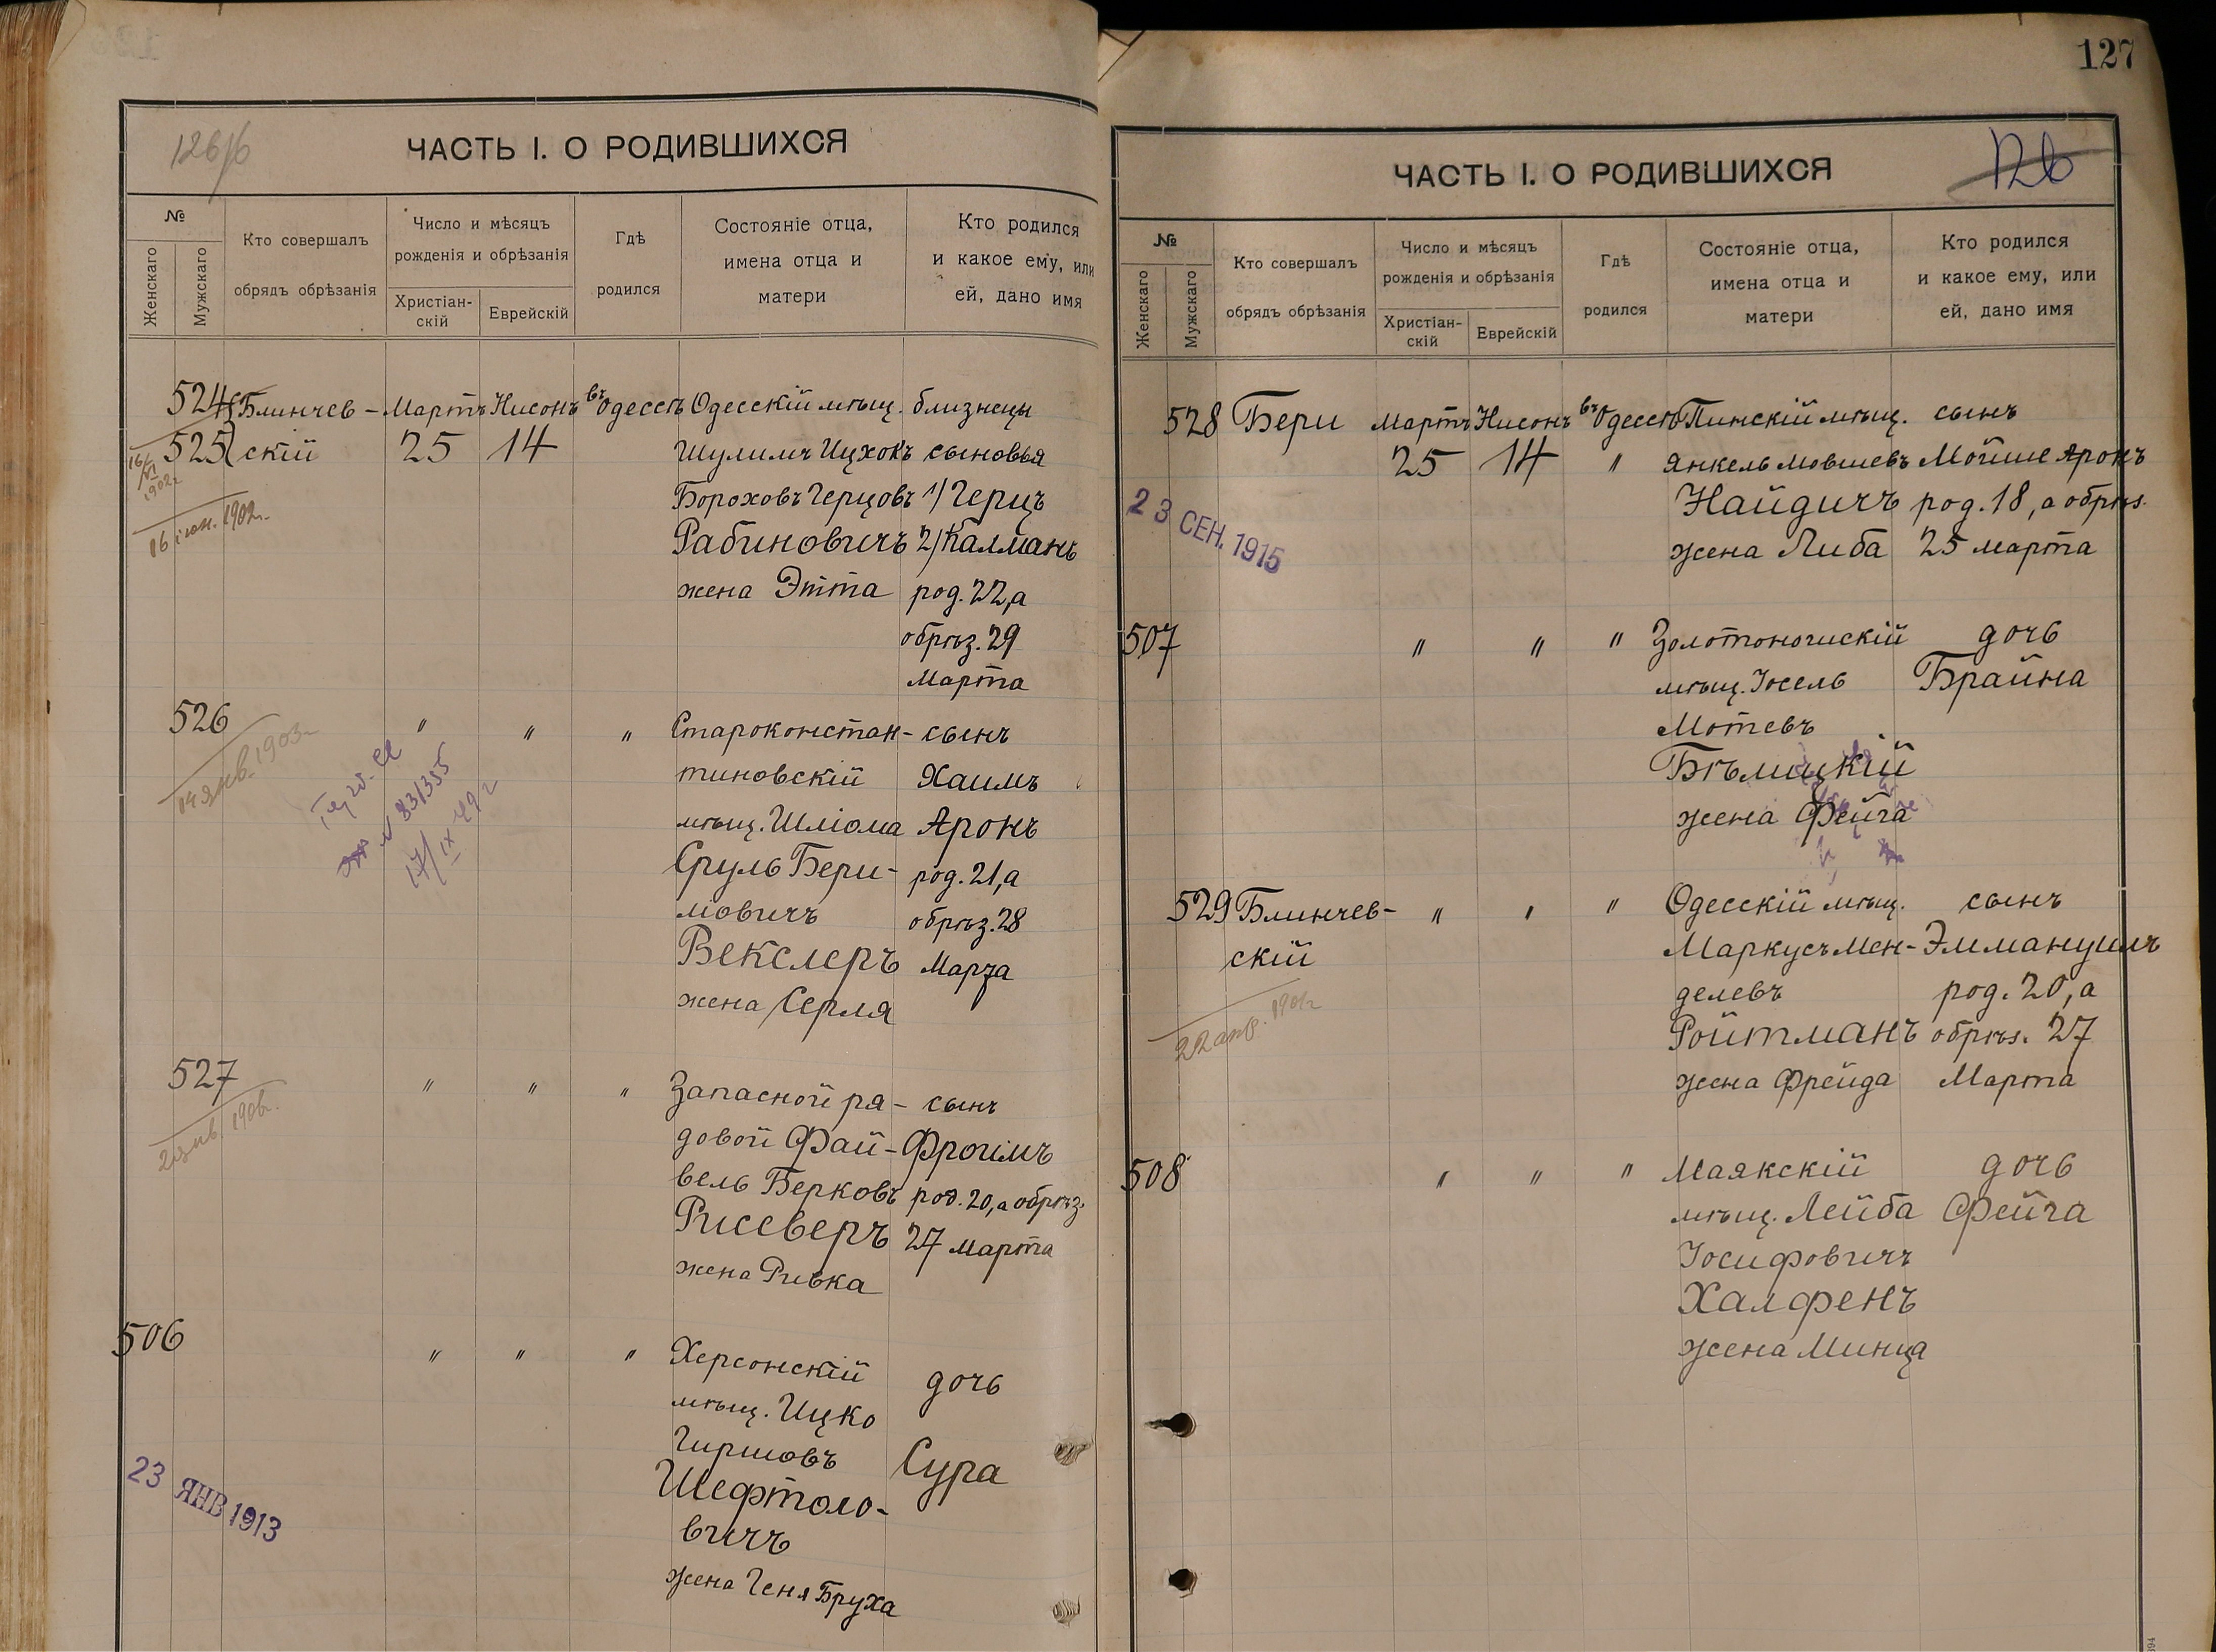 126
ЧАСТЬ I. О РОДИВШИХСЯ
№
Женскаго
Мужскаго
Кто совершалъ
обрядъ обрѣзанія
Число и мѣсяцъ
рожденія и обрѣзанія
Христіан-
скій
Еврейскій
Гдѣ
родился
Состояніе отца,
имена отца и
матери
Кто родился
и какое ему, или
ей, дано имя
524 Блинчев- Мартъ Нисонъ въ Одессѣ Одесскій мѣщ. близнецы
525 скій 25 14 Шулимъ Ицхокъ сыновья
Бороховъ Герцовъ 1) Герцъ
Рабиновичъ 2) Калманъ
жена Этта род. 22, а
обрѣз. 29
Марта
16/VI 1902г
16 іюн. 1902г.
526 " " " Староконстан- сынъ
тиновскій Хаимъ
мѣщ. Шліома Аронъ
Сруль Бери- род. 21, а
мовичъ обрѣз. 28
Векслеръ Марта
жена Серля
14 янв. 1903г
№ 831355
17/IX 49 г
527 " " " Запасной ря- сынъ
довой Фай- Фроимъ
вель Берковъ род. 20, а обрѣз.
Рисеверъ 27 марта
жена Ривка
1906г.
506 " " " Херсонскій дочь
мѣщ. Ицко
Гиршовъ Сура
Шефтоло-
вичъ
жена Геня Бруха
23 ЯНВ 1913
127
126
ЧАСТЬ I. О РОДИВШИХСЯ
№
Женскаго
Мужскаго
Кто совершалъ
обрядъ обрѣзанія
Число и мѣсяцъ
рожденія и обрѣзанія
Христіан-
скій
Еврейскій
Гдѣ
родился
Состояніе отца,
имена отца и
матери
Кто родился
и какое ему, или
ей, дано имя
528 Бери Мартъ Нисонъ въ Одессѣ Пинскій мѣщ. сынъ
25 14 " Янкель Мовшевъ Мойше Аронъ
Найдичъ род. 18, а обрѣз.
жена Либа 25 марта
23 СЕН. 1915
507 " " " Золотоношскій дочь
мѣщ. Іосель Брайна
Мотевъ
Бѣлицкій
жена Фейга
529 Блинчев- " " " Одесскій мѣщ. сынъ
скій Маркусъ Мен- Эммануилъ
делевъ род. 20, а
Ройтманъ обрѣз. 27
жена Фрейда Марта
22 апр. 1901г
508 " " " Маякскій дочь
мѣщ. Лейба Фейга
Іосифовичъ
Халфенъ
жена Минца